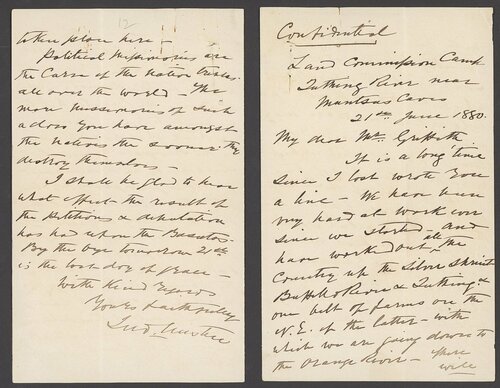 12
other place here –
Political Missionaries are
the Curse of the nation
all over the world – The
more missionaries of such
a class you have amongst
the natives the sooner they
destroy themselves –
I shall be glad to hear
what effect the result of
the petitions & deputation
has had upon the Basutos –
By the bye tomorrow 21st
is the last day of grace –
With Kind Regards
Yours faithfully
Confidential
Land Commission Camp
River near
Caves
21st June 1880.
My dear Mr Griffith
It is a long time
since I last wrote you
a line – We have been
very hard at work ever
since we started – and
have worked out all the
Country up the Silver
Buffels River & &
one belt of farms on the
N.E. of the latter – with
which we are going down to
the Orange River – There
will